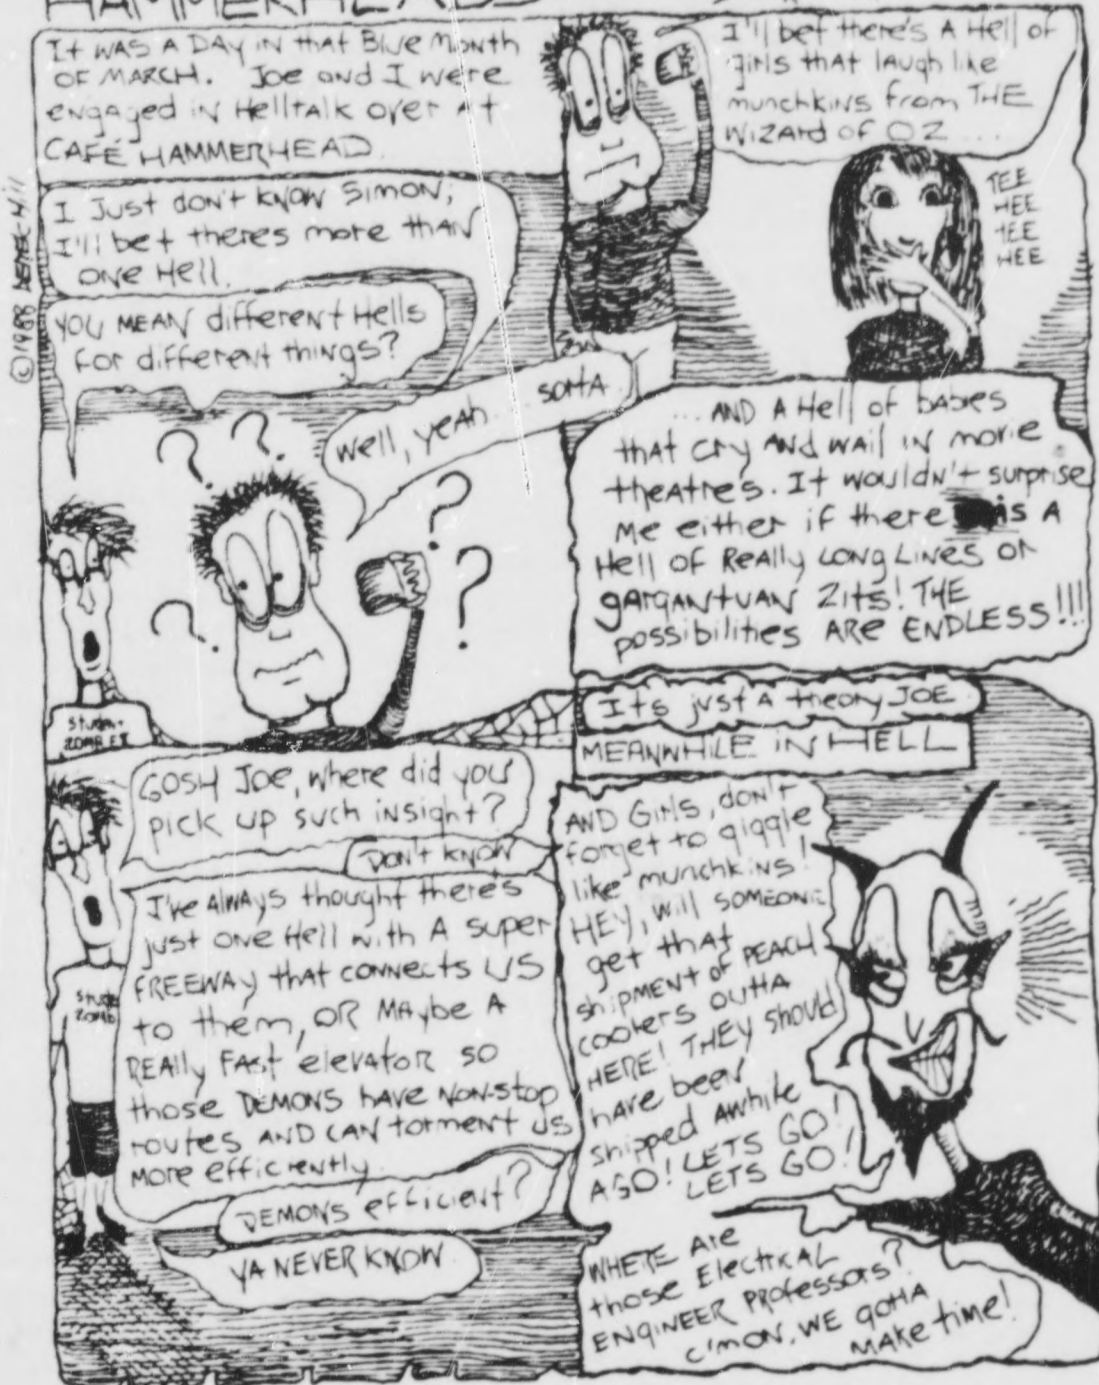 HAMMERHEADS
It was a day in that Blue Month
of March. Joe and I were
engaged in Helltalk over at
CAFÉ HAMMERHEAD.
I Just don't know Simon;
I'll bet theres more than
one Hell.
You mean different Hells
for different things?
Well, yeah.. sotta
I'll bet there's a Hell of
girls that laugh like
munchkins from THE
Wizard of OZ...
TEE
HEE
TEE
HEE
...and a Hell of babies
that cry and wail in movie
theatres. It wouldn't surprise
me either if there is a
Hell of Really Long Lines or
gargantuan Zits! THE
possibilities are ENDLESS!!!
Its just a theory JOE
MEANWHILE IN HELL
GOSH JOE, where did you
pick up such insight?
Don't know
I've always thought there's
just one Hell with a super
FREEWAY that connects US
to them, OR Maybe a
REALLY FAST elevator so
those DEMONS have NON-stop
routes and can torment us
more efficiently.
DEMONS efficient?
YA NEVER KNOW
AND Girls, don't
forget to giggle
like munchkins!
HEY, will SOMEONE
get that
shipment of PEACH
coolers OUTTA
HERE! THEY should
have been
shipped awhile
AGO! LETS GO!
LETS GO!
WHERE Are
those Electrical
ENGINEER Professors?
C'mon. WE GOTTA
make time!
©1988 DEREK HILL